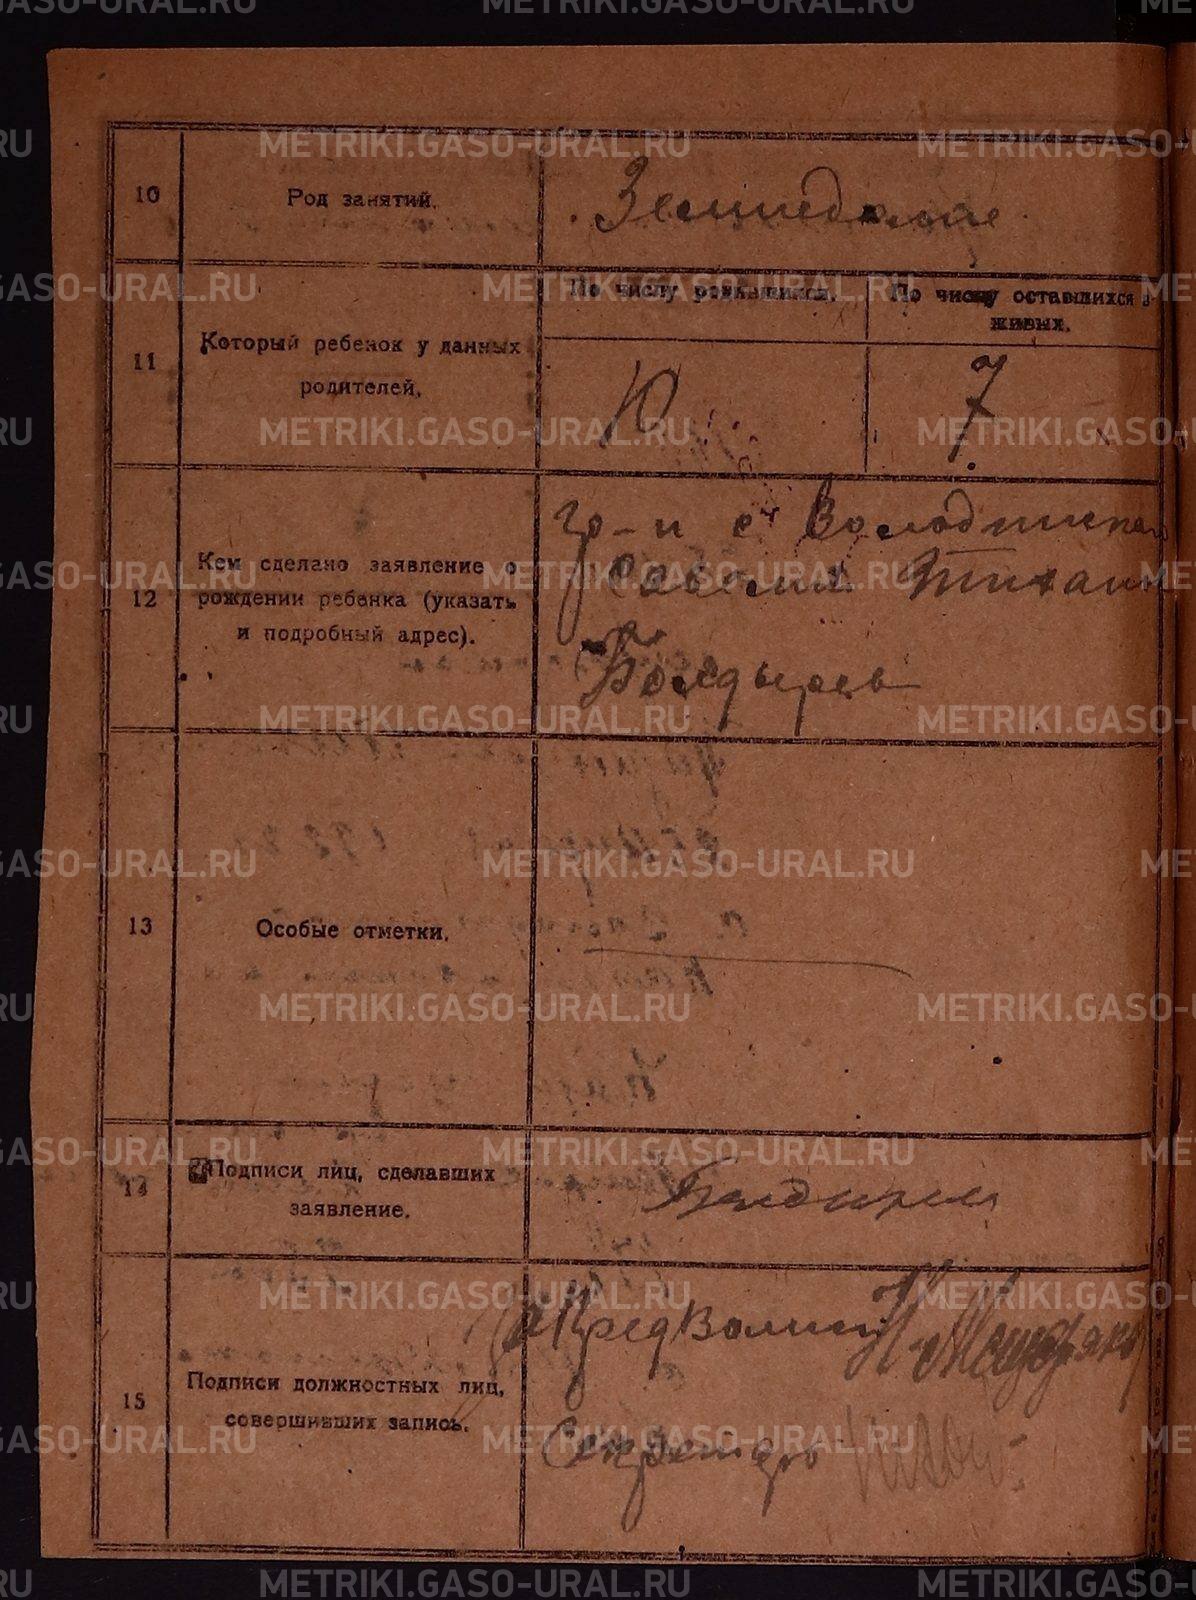 10
Род занятий.
Земледелие
11
Который ребенок у данных
родителей.
По числу родившихся.
По числу оставшихся в
живых.
10
7
12
Кем сделано заявление о
рождении ребенка (указать
и подробный адрес).
гр-н с Володинского
Савелий Тихан
Болдырев
13
Особые отметки.
14
Подписи лиц, сделавших
заявление.
Болдырев
15
Подписи должностных лиц,
совершивших запись.
За Пред Волис
Секретарь
METRIKI.GASO-URAL.RU